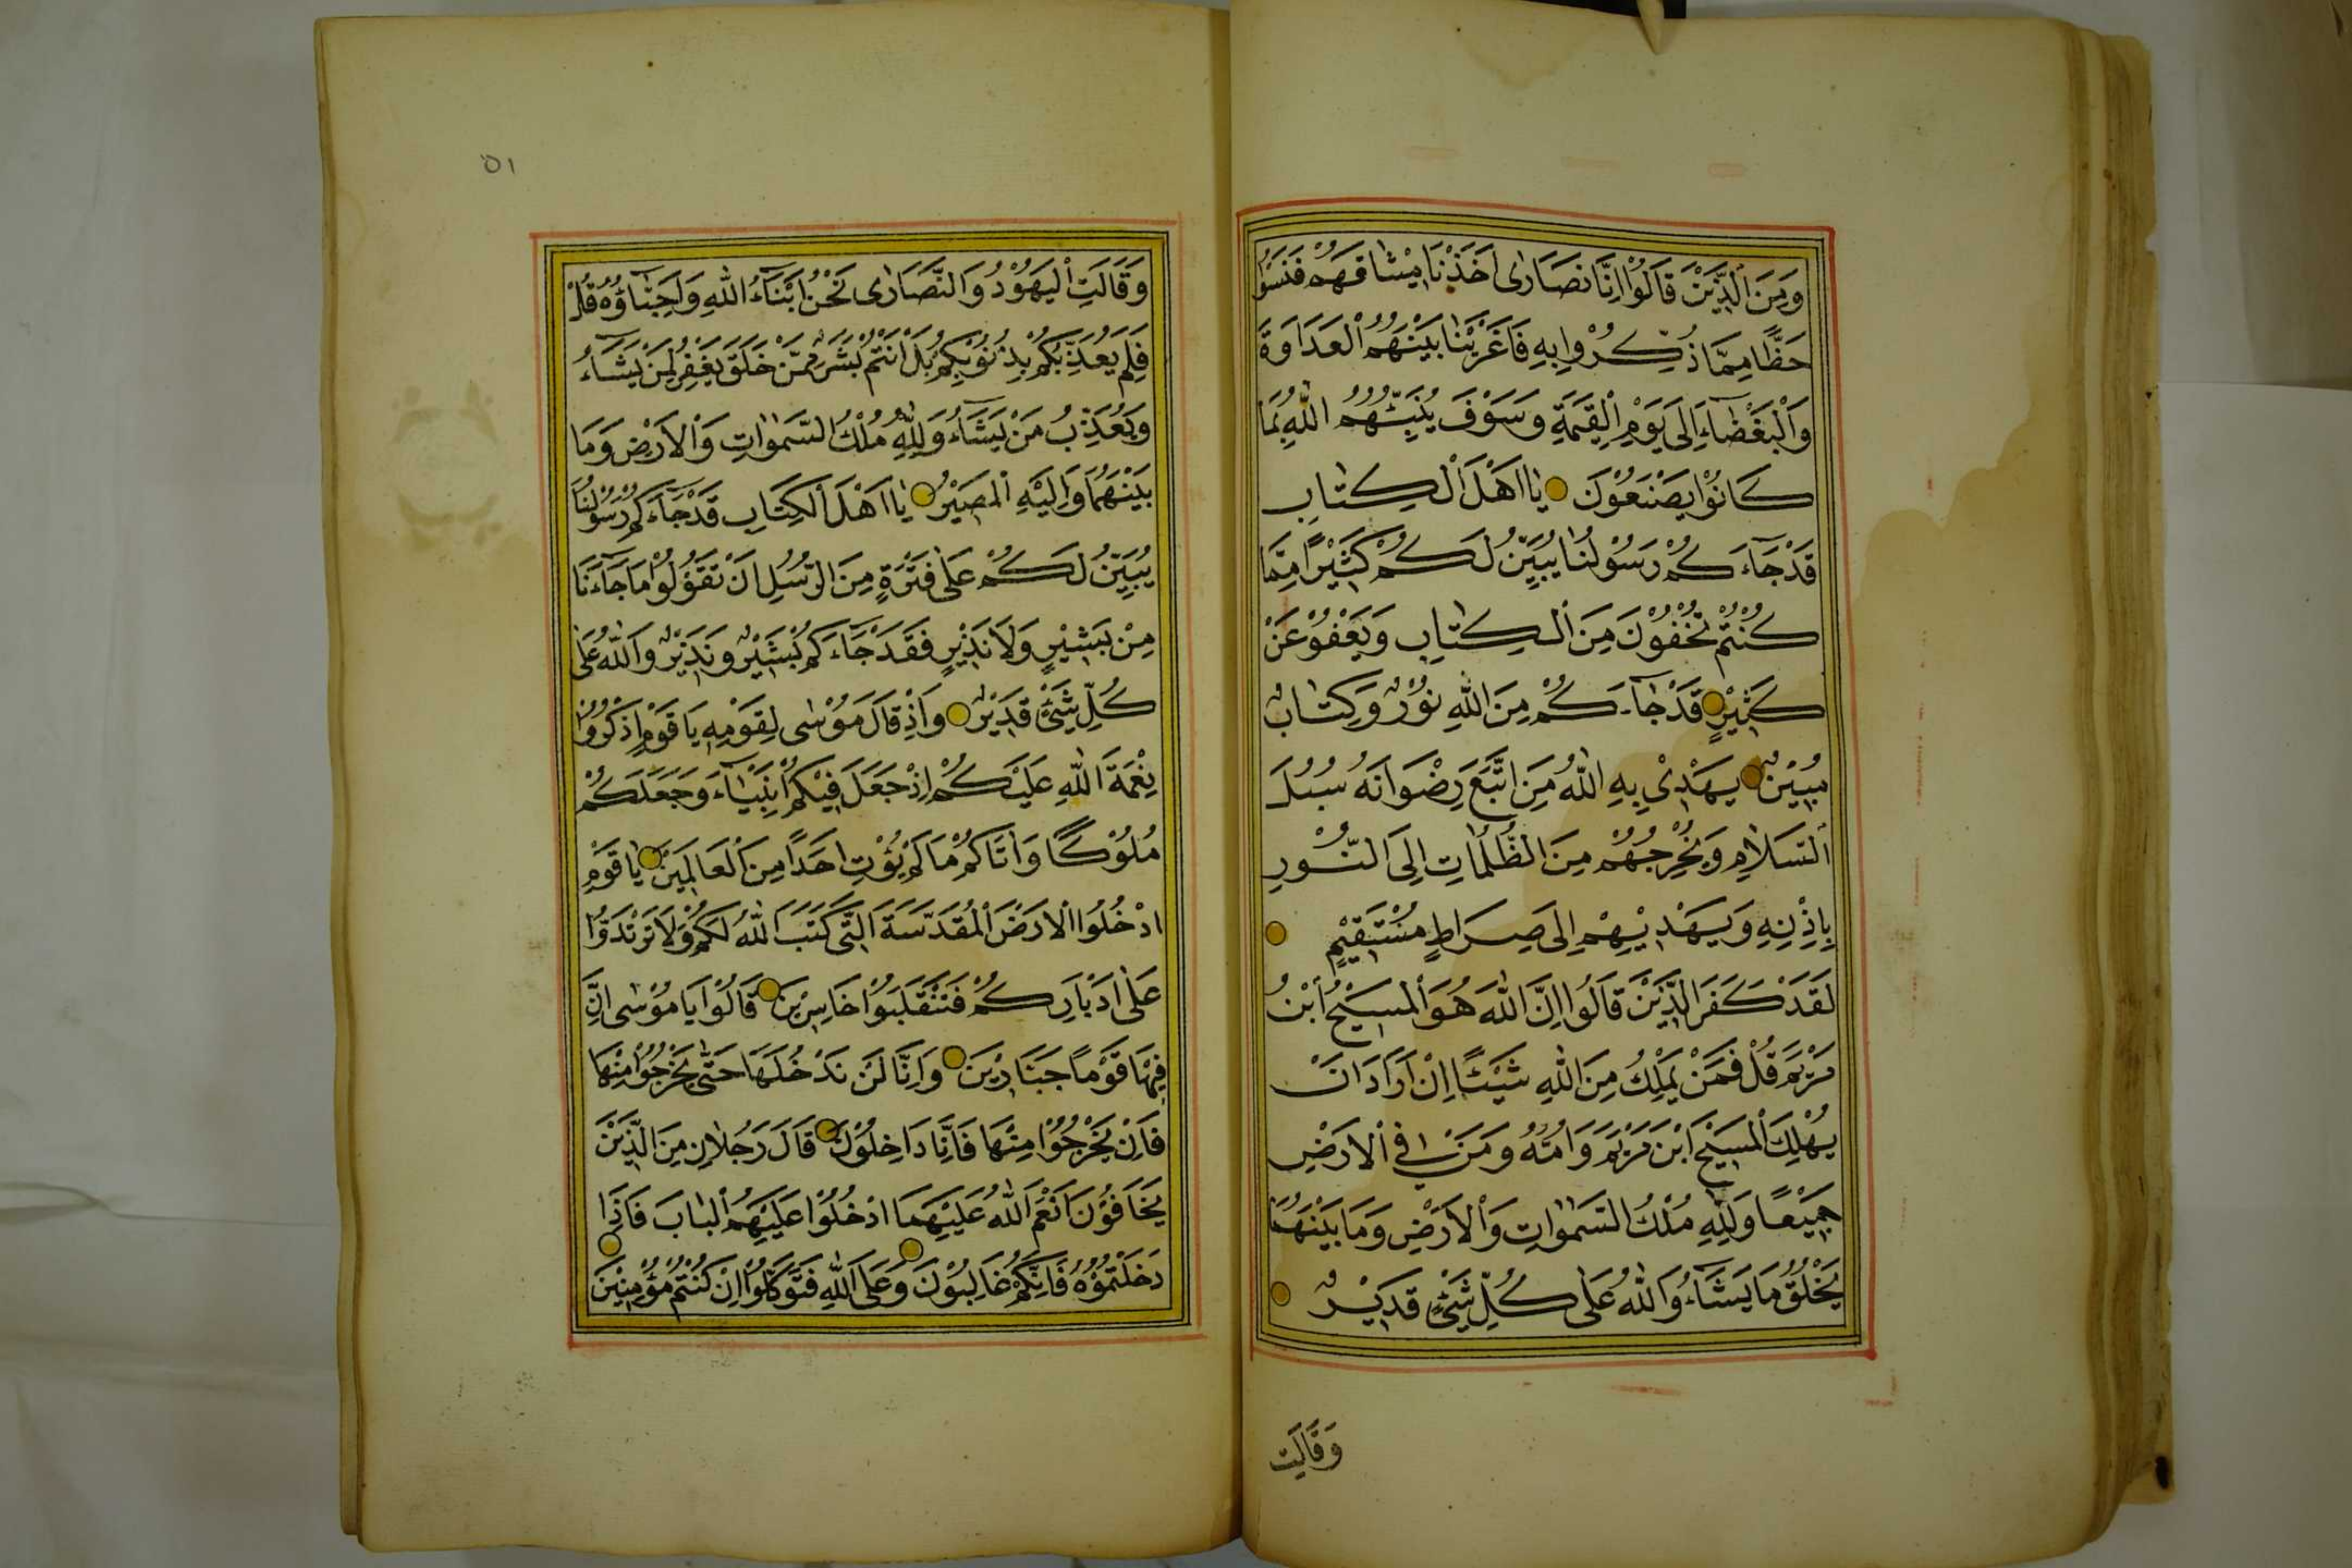 وَمِنَ الَّذِيْنَ قَالُوْا اِنَّا نَصَارٰى اَخَذْنَا مِيْثَاقَهُمْ فَنَسُوْا
حَظًّا مِمَّا ذُكِّرُوْا بِهِ فَاَغْرَيْنَا بَيْنَهُمُ الْعَدَاوَةَ
وَالْبَغْضَآءَ اِلٰى يَوْمِ الْقِيٰمَةِ وَسَوْفَ يُنَبِّئُهُمُ اللّٰهُ بِمَا
كَانُوْا يَصْنَعُوْنَ يٰا اَهْلَ الْكِتٰابِ
قَدْ جَآءَكُمْ رَسُوْلُنَا يُبَيِّنُ لَكُمْ كَثِيْرًا مِمَّا
كُنْتُمْ تُخْفُوْنَ مِنَ الْكِتٰابِ وَيَعْفُوْ عَنْ
كَثِيْرٍ قَدْ جٰآءَكُمْ مِنَ اللّٰهِ نُوْرٌ وَكِتٰابٌ
مُبِيْنٌ يَهْدِيْ بِهِ اللّٰهُ مَنِ اتَّبَعَ رِضْوَانَهُ سُبُلَ
السَّلَامِ وَيُخْرِجُهُمْ مِنَ الظُّلُمٰاتِ اِلَى النُّوْرِ
بِاِذْنِهِ وَيَهْدِيْهِمْ اِلٰى صِرَاطٍ مُسْتَقِيْمٍ
لَقَدْ كَفَرَ الَّذِيْنَ قَالُوا اِنَّ اللّٰهَ هُوَ الْمَسِيْحُ ابْنُ
مَرْيَمَ قُلْ فَمَنْ يَمْلِكُ مِنَ اللّٰهِ شَيْئًا اِنْ اَرَادَ اَنْ
يُهْلِكَ الْمَسِيْحَ ابْنَ مَرْيَمَ وَاُمَّهُ وَمَنْ فِي الْاَرْضِ
جَمِيْعًا وَلِلّٰهِ مُلْكُ السَّمٰوٰاتِ وَالْاَرْضِ وَمَا بَيْنَهُمَا
يَخْلُقُ مَا يَشَآءُ وَاللّٰهُ عَلٰى كُلِّ شَيْءٍ قَدِيْرٌ
وَقَالَتِ
٥١
وَقَالَتِ الْيَهُوْدُ وَالنَّصَارٰى نَحْنُ اَبْنَآءُ اللّٰهِ وَاَحِبَّآؤُهُ قُلْ
فَلِمَ يُعَذِّبُكُمْ بِذُنُوْبِكُمْ بَلْ اَنْتُمْ بَشَرٌ مِمَّنْ خَلَقَ يَغْفِرُ لِمَنْ يَشَآءُ
وَيُعَذِّبُ مَنْ يَشَآءُ وَلِلّٰهِ مُلْكُ السَّمٰوٰاتِ وَالْاَرْضِ وَمَا
بَيْنَهُمَا وَاِلَيْهِ الْمَصِيْرُ يٰا اَهْلَ الْكِتَابِ قَدْ جَآءَكُمْ رَسُوْلُنَا
يُبَيِّنُ لَكُمْ عَلٰى فَتْرَةٍ مِنَ الرُّسُلِ اَنْ تَقُوْلُوْا مَا جَآءَنَا
مِنْ بَشِيْرٍ وَلَا نَذِيْرٍ فَقَدْ جَآءَكُمْ بَشِيْرٌ وَنَذِيْرٌ وَاللّٰهُ عَلٰى
كُلِّ شَيْءٍ قَدِيْرٌ وَاِذْ قَالَ مُوْسٰى لِقَوْمِهِ يَا قَوْمِ اذْكُرُوْا
نِعْمَةَ اللّٰهِ عَلَيْكُمْ اِذْ جَعَلَ فِيْكُمْ اَنْبِيَآءَ وَجَعَلَكُمْ
مُلُوْكًا وَاٰتَاكُمْ مَا لَمْ يُؤْتِ اَحَدًا مِنَ الْعَالَمِيْنَ يٰا قَوْمِ
ادْخُلُوا الْاَرْضَ الْمُقَدَّسَةَ الَّتِي كَتَبَ اللّٰهُ لَكُمْ وَلَا تَرْتَدُّوْا
عَلٰى اَدْبَارِكُمْ فَتَنْقَلِبُوْا خَاسِرِيْنَ قَالُوْا يَا مُوْسٰى اِنَّ
فِيْهَا قَوْمًا جَبَّارِيْنَ وَاِنَّا لَنْ نَدْخُلَهَا حَتّٰى يَخْرُجُوْا مِنْهَا
فَاِنْ يَخْرُجُوْا مِنْهَا فَاِنَّا دَاخِلُوْنَ قَالَ رَجُلَانِ مِنَ الَّذِيْنَ
يَخَافُوْنَ اَنْعَمَ اللّٰهُ عَلَيْهِمَا ادْخُلُوْا عَلَيْهِمُ الْبٰابَ فَاِذَا
دَخَلْتُمُوْهُ فَاِنَّكُمْ غَالِبُوْنَ وَعَلَى اللّٰهِ فَتَوَكَّلُوْا اِنْ كُنْتُمْ مُؤْمِنِيْنَ